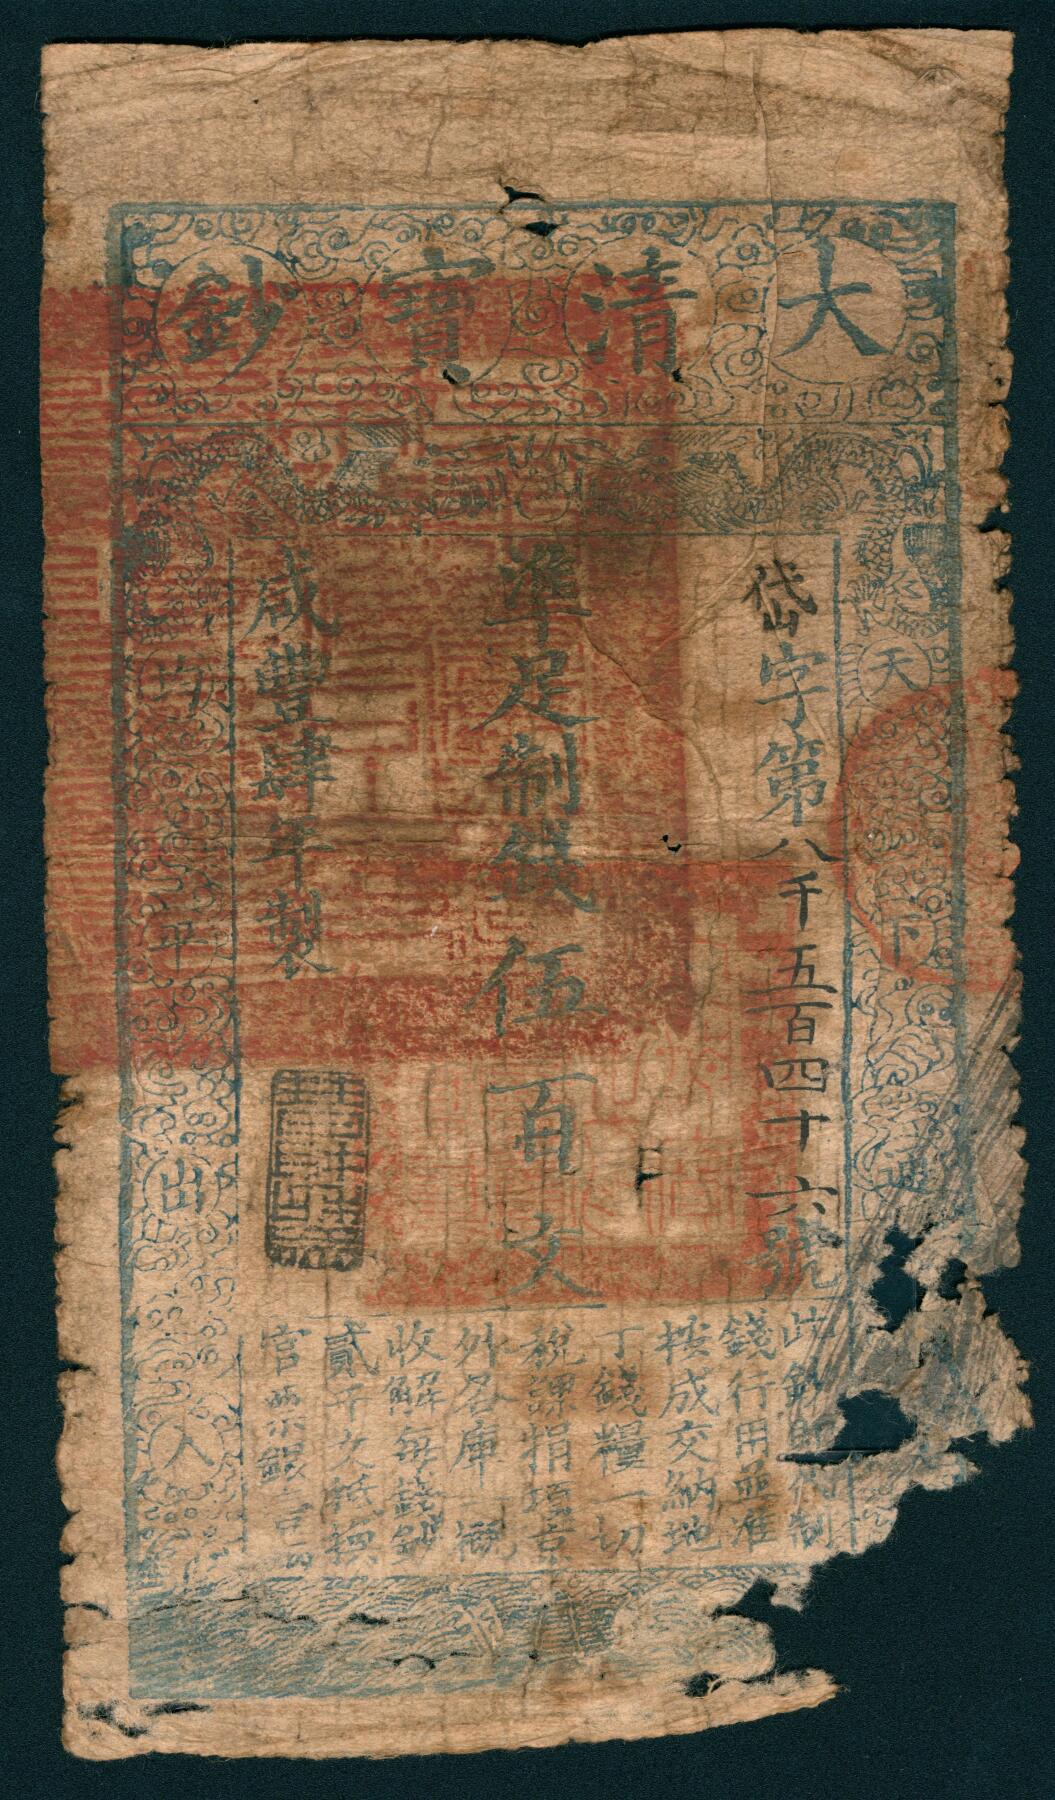 大清寶鈔
天下通
均平出入
岱字第八千五百四十六號
準足制錢伍百文
咸豐肆年製
此鈔即代制
錢行用並准
按成交納地
丁錢糧一切
稅課捐項京
外各庫一概
收解每錢鈔
貳千文抵換
官票銀壹兩